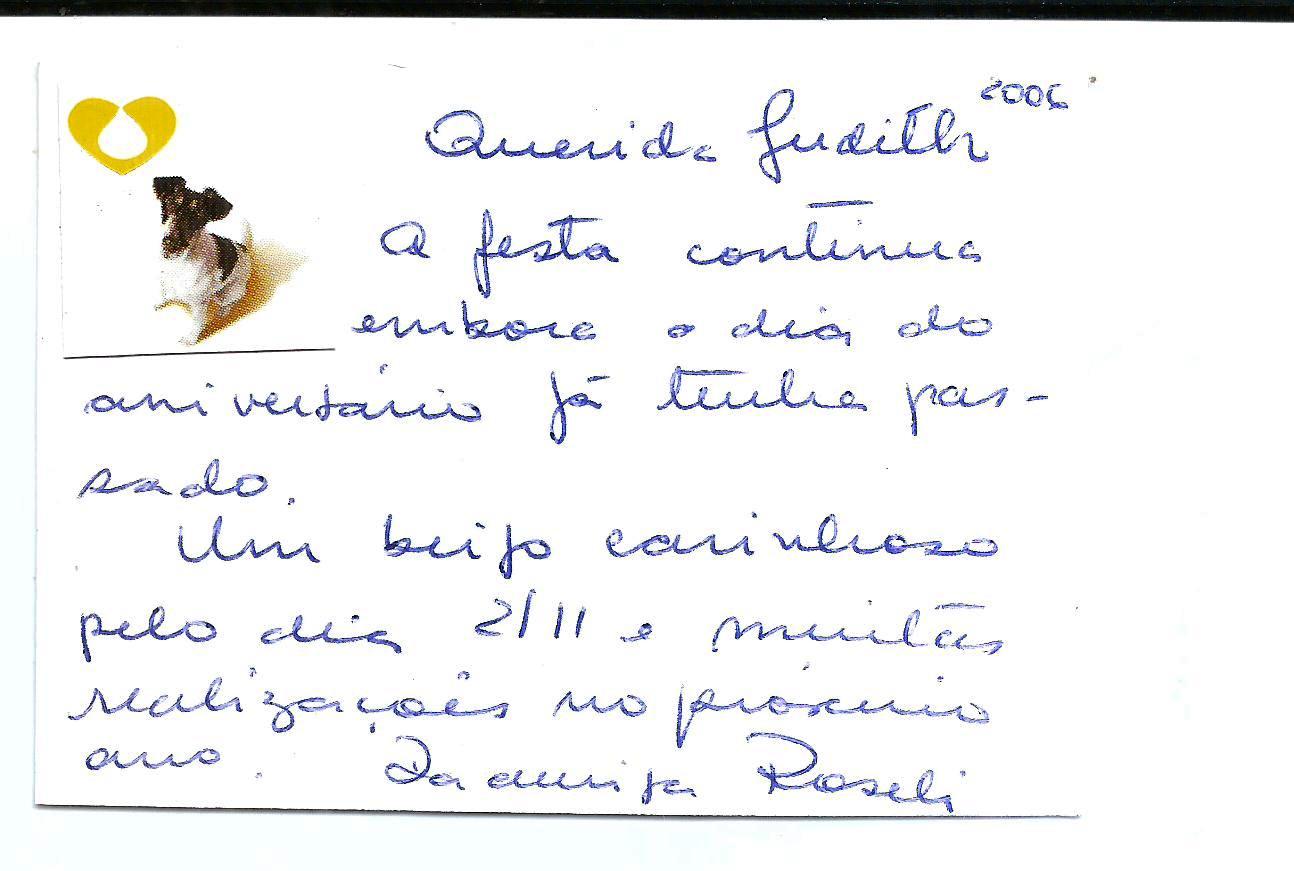 2006
Querida Judith
A festa continua
embora o dia do
aniversário já tenha pas-
sado.
Um beijo carinhoso
pelo dia 2/11 e muitas
realizações no próximo
ano. Da amiga Roseli